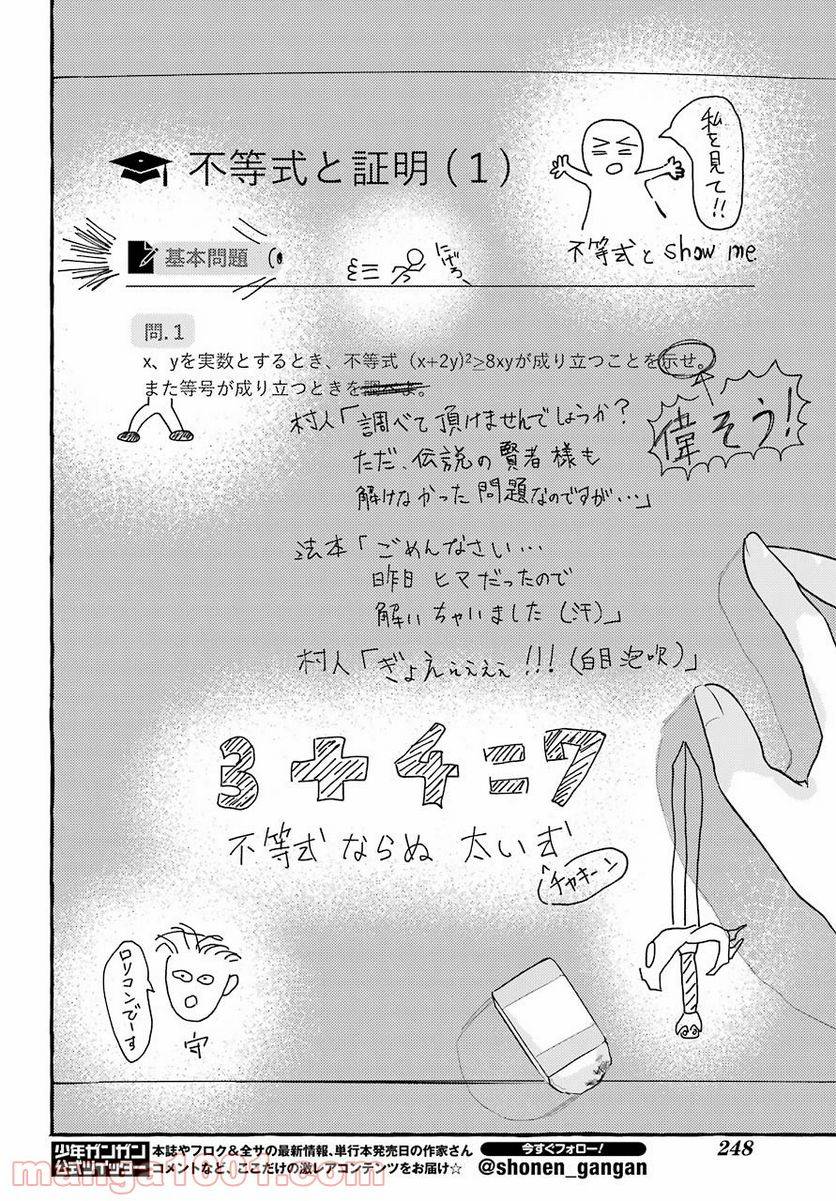 不等式と証明（1）
私を見て!!
不等式と show me
基本問題
にげろ
問.1
x、yを実数とするとき、不等式 (x+2y)²≥8xyが成り立つことを示せ。
また等号が成り立つときを調べよ。
偉そう!
村人「調べて頂けませんでしょうか?
ただ、伝説の賢者様も
解けなかった問題なのですが…」
法本「ごめんなさい…
昨日ヒマだったので
解いちゃいました(汗)」
村人「ぎょえぇぇぇぇ!!!(白目泡吹)」
3+4=7
不等式ならぬ 太い式
チャキーン
ロリコンでーす
守
少年ガンガン
公式ツイッター
本誌やフロク&全サの最新情報、単行本発売日の作家さん
コメントなど、ここだけの激レアコンテンツをお届け☆
今すぐフォロー!
@shonen_gangan
248
manga1001.com